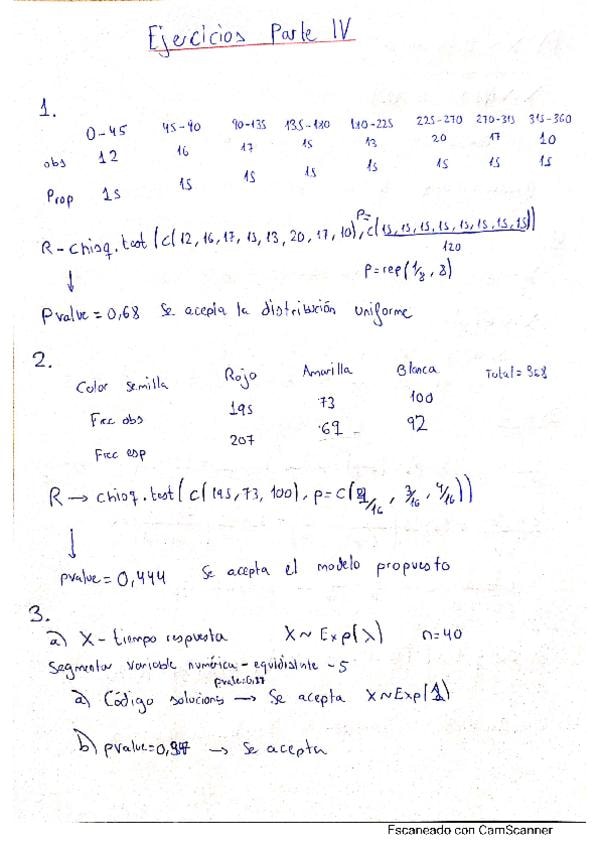 Ejercicios Parte IV
1.
0-45 45-90 90-135 135-180 180-225 225-270 270-315 315-360
obs 12 16 17 15 13 20 17 10
Prop 15 15 15 15 15 15 15 15
R - chisq.test (c(12, 16, 17, 15, 13, 20, 17, 10), p= c(15, 15, 15, 15, 15, 15, 15, 15))
120
p=rep(1/8, 8)
↓
Pvalue = 0,68 Se acepta la distribución uniforme
2.
Color semilla Rojo Amarilla Blanca Total = 368
Frec obs 195 73 100
Frec esp 207 69 92
R → chisq.test (c(195, 73, 100), p=c(9/16, 3/16, 4/16))
↓
pvalue = 0,444 Se acepta el modelo propuesto
3.
a) X - tiempo respuesta X ~ Exp(λ) n=40
Segmentar variable numérica - equidistante - 5
a) Código solucions → Se acepta X~Exp(
b) pvalue= → Se acepta
Escaneado con CamScanner